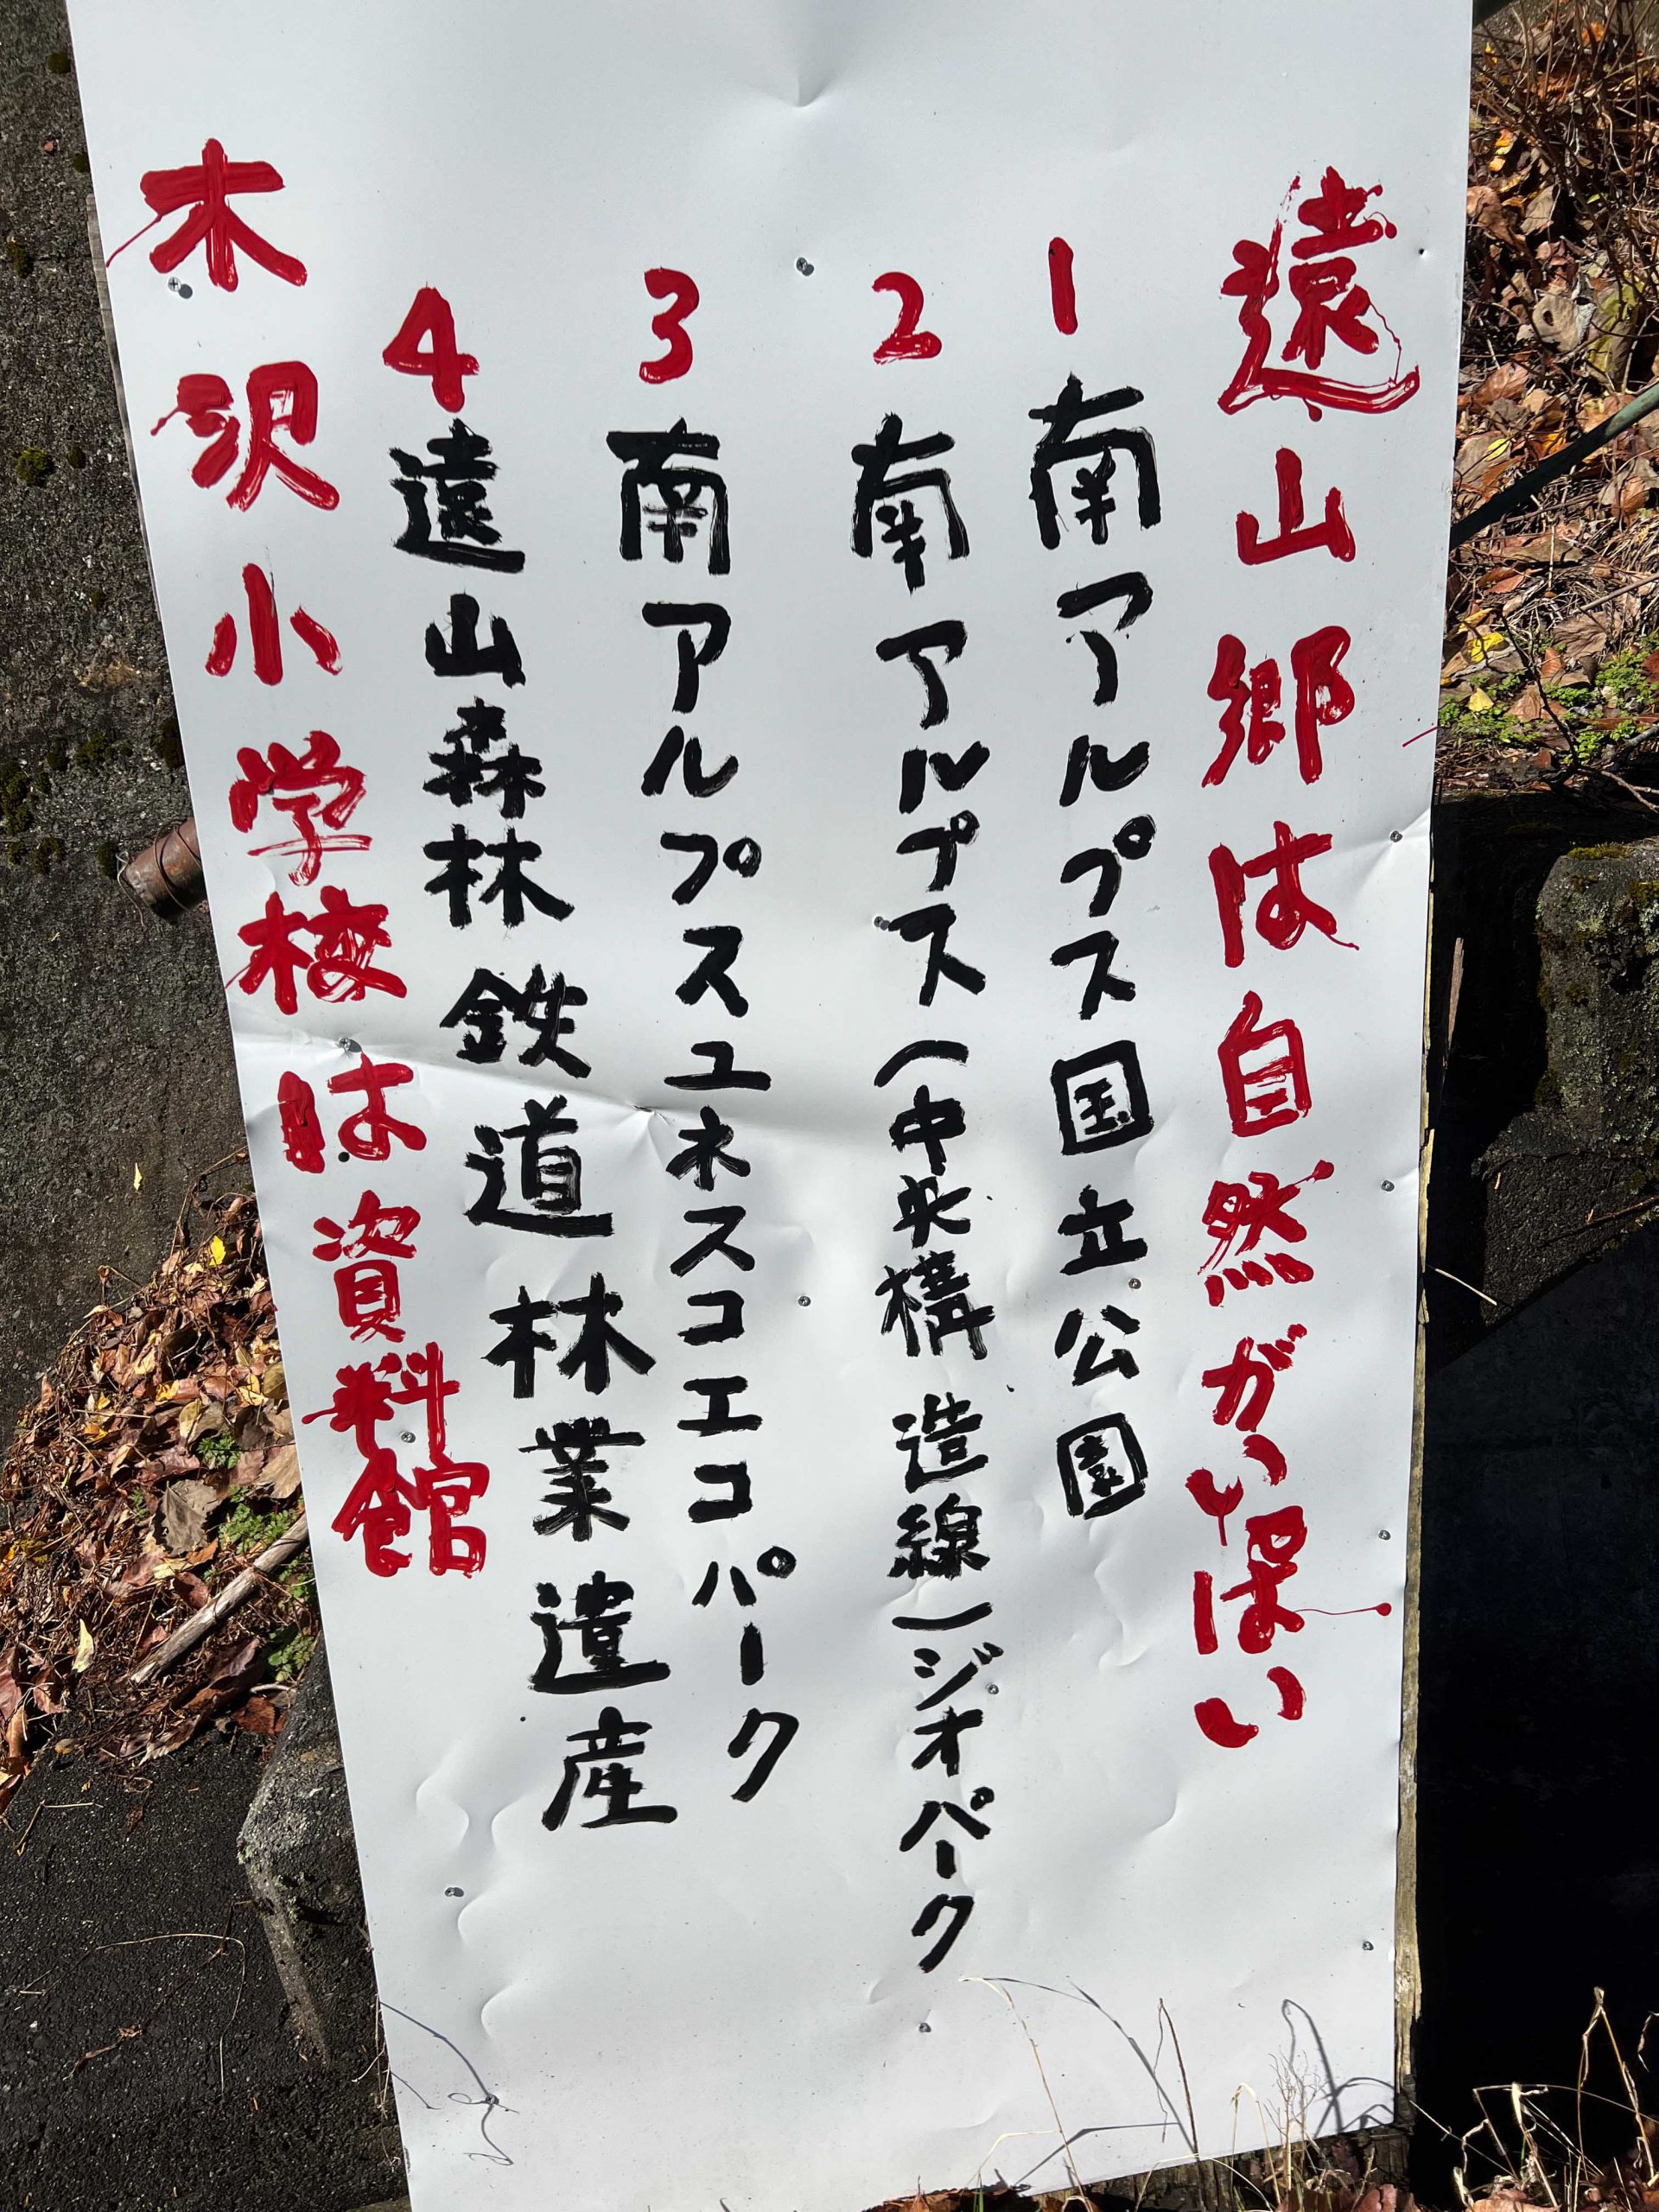 遠山郷は自然がいっぱい
1 南アルプス国立公園
2 南アルプス(中央構造線)ジオパーク
3 南アルプスユネスコエコパーク
4 遠山森林鉄道林業遺産
木沢小学校は資料館